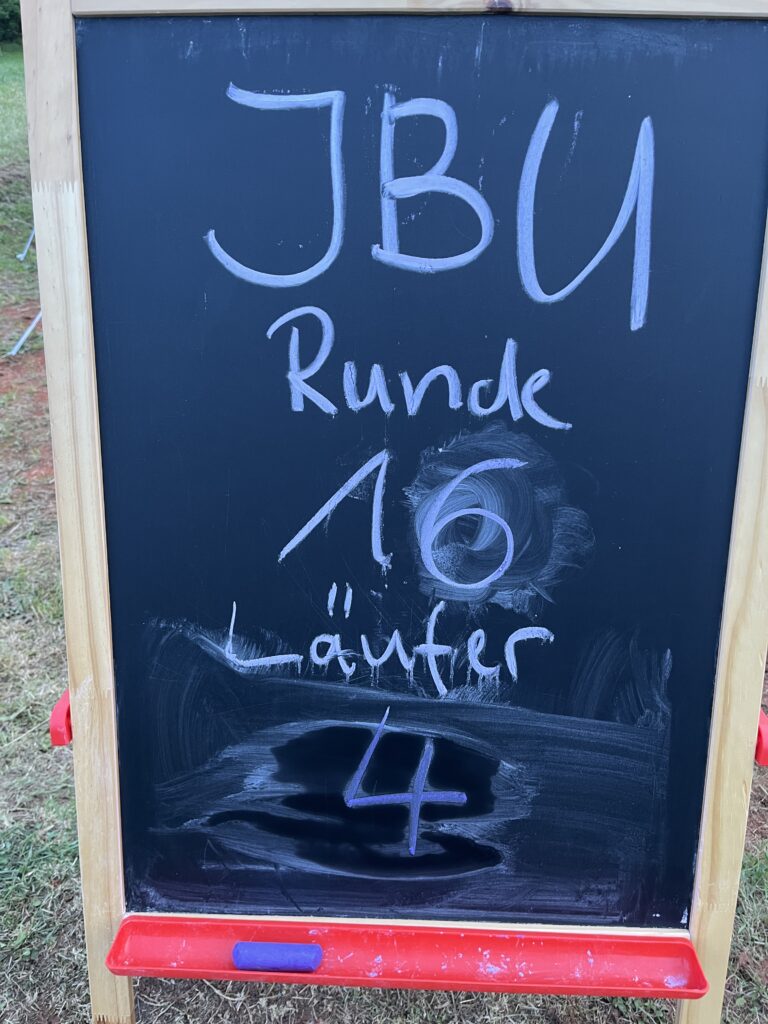 JBU
Runde
16
Läufer
4